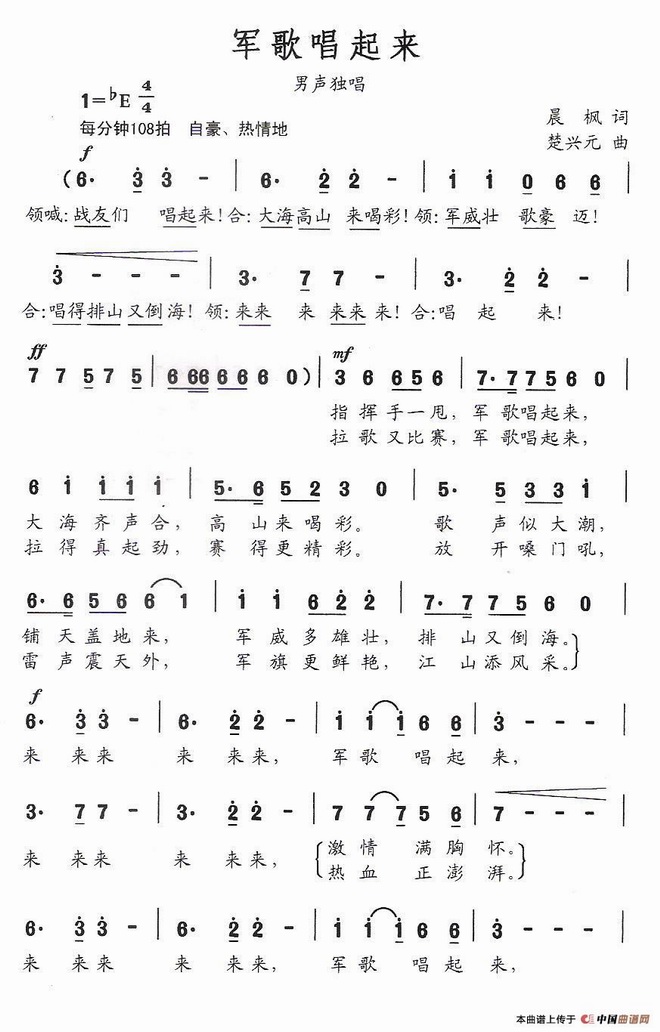 军歌唱起来
男声独唱
1=♭E 4/4
每分钟108拍 自豪、热情地
晨枫 词
楚兴元 曲
f
(6· 3 3 - | 6· 2 2 - | 1 1 0 6 6 |
领喊:战友们 唱起来!合:大海高山 来喝彩!领:军威壮 歌豪迈!
3 - - - | 3· 7 7 - | 3· 2 2 - |
合:唱得排山又倒海!领:来来 来 来来来!合:唱 起 来!
ff mf
7 7 5 7 5 | 6 6 6 6 6 6 0) | 3 6 6 5 6 | 7· 7 7 5 6 0 |
指挥手一甩,军歌唱起来,
拉歌又比赛,军歌唱起来,
6 1 1 1 1 | 5· 6 5 2 3 0 | 5· 5 3 3 1 |
大海齐声合,高山来喝彩。歌声似大潮,
拉得真起劲,赛得更精彩。放开嗓门吼,
6· 6 5 6 6 1 | 1 1 6 2 2 | 7· 7 7 5 6 0 |
铺天盖地来,军威多雄壮,排山又倒海。
雷声震天外,军旗更鲜艳,江山添风采。
f
6· 3 3 - | 6· 2 2 - | 1 1 1 6 6 | 3 - - - |
来 来来 来 来来 军歌 唱起 来,
3· 7 7 - | 3· 2 2 - | 7 7 7 5 6 | 7 - - - |
来 来来 来 来来, 激情 满胸 怀。
热血 正澎 湃。
6· 3 3 - | 6· 2 2 - | 1 1 1 6 6 | 3 - - - |
来 来来 来 来来, 军歌 唱起 来,
本曲谱上传于 中国曲谱网